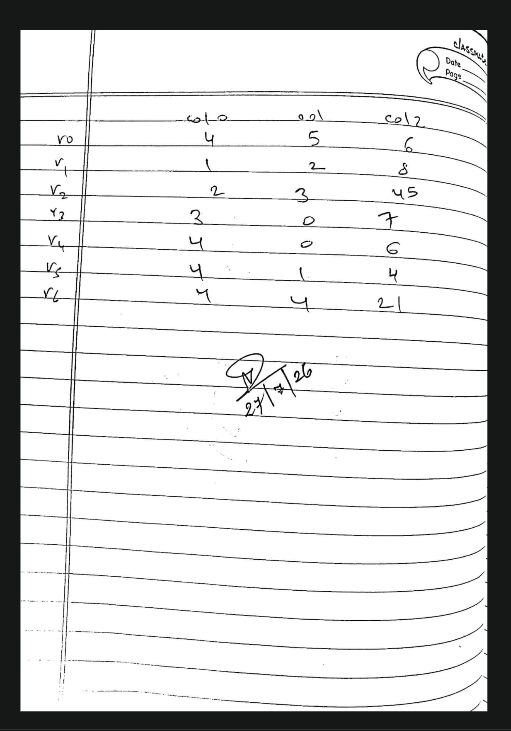 classmate
Date
Page
col0 col col2
r0 4 5 6
r1 1 2 8
r2 2 3 45
r3 3 0 7
r4 4 0 6
r5 4 1 4
r6 4 4 21
27/7/26